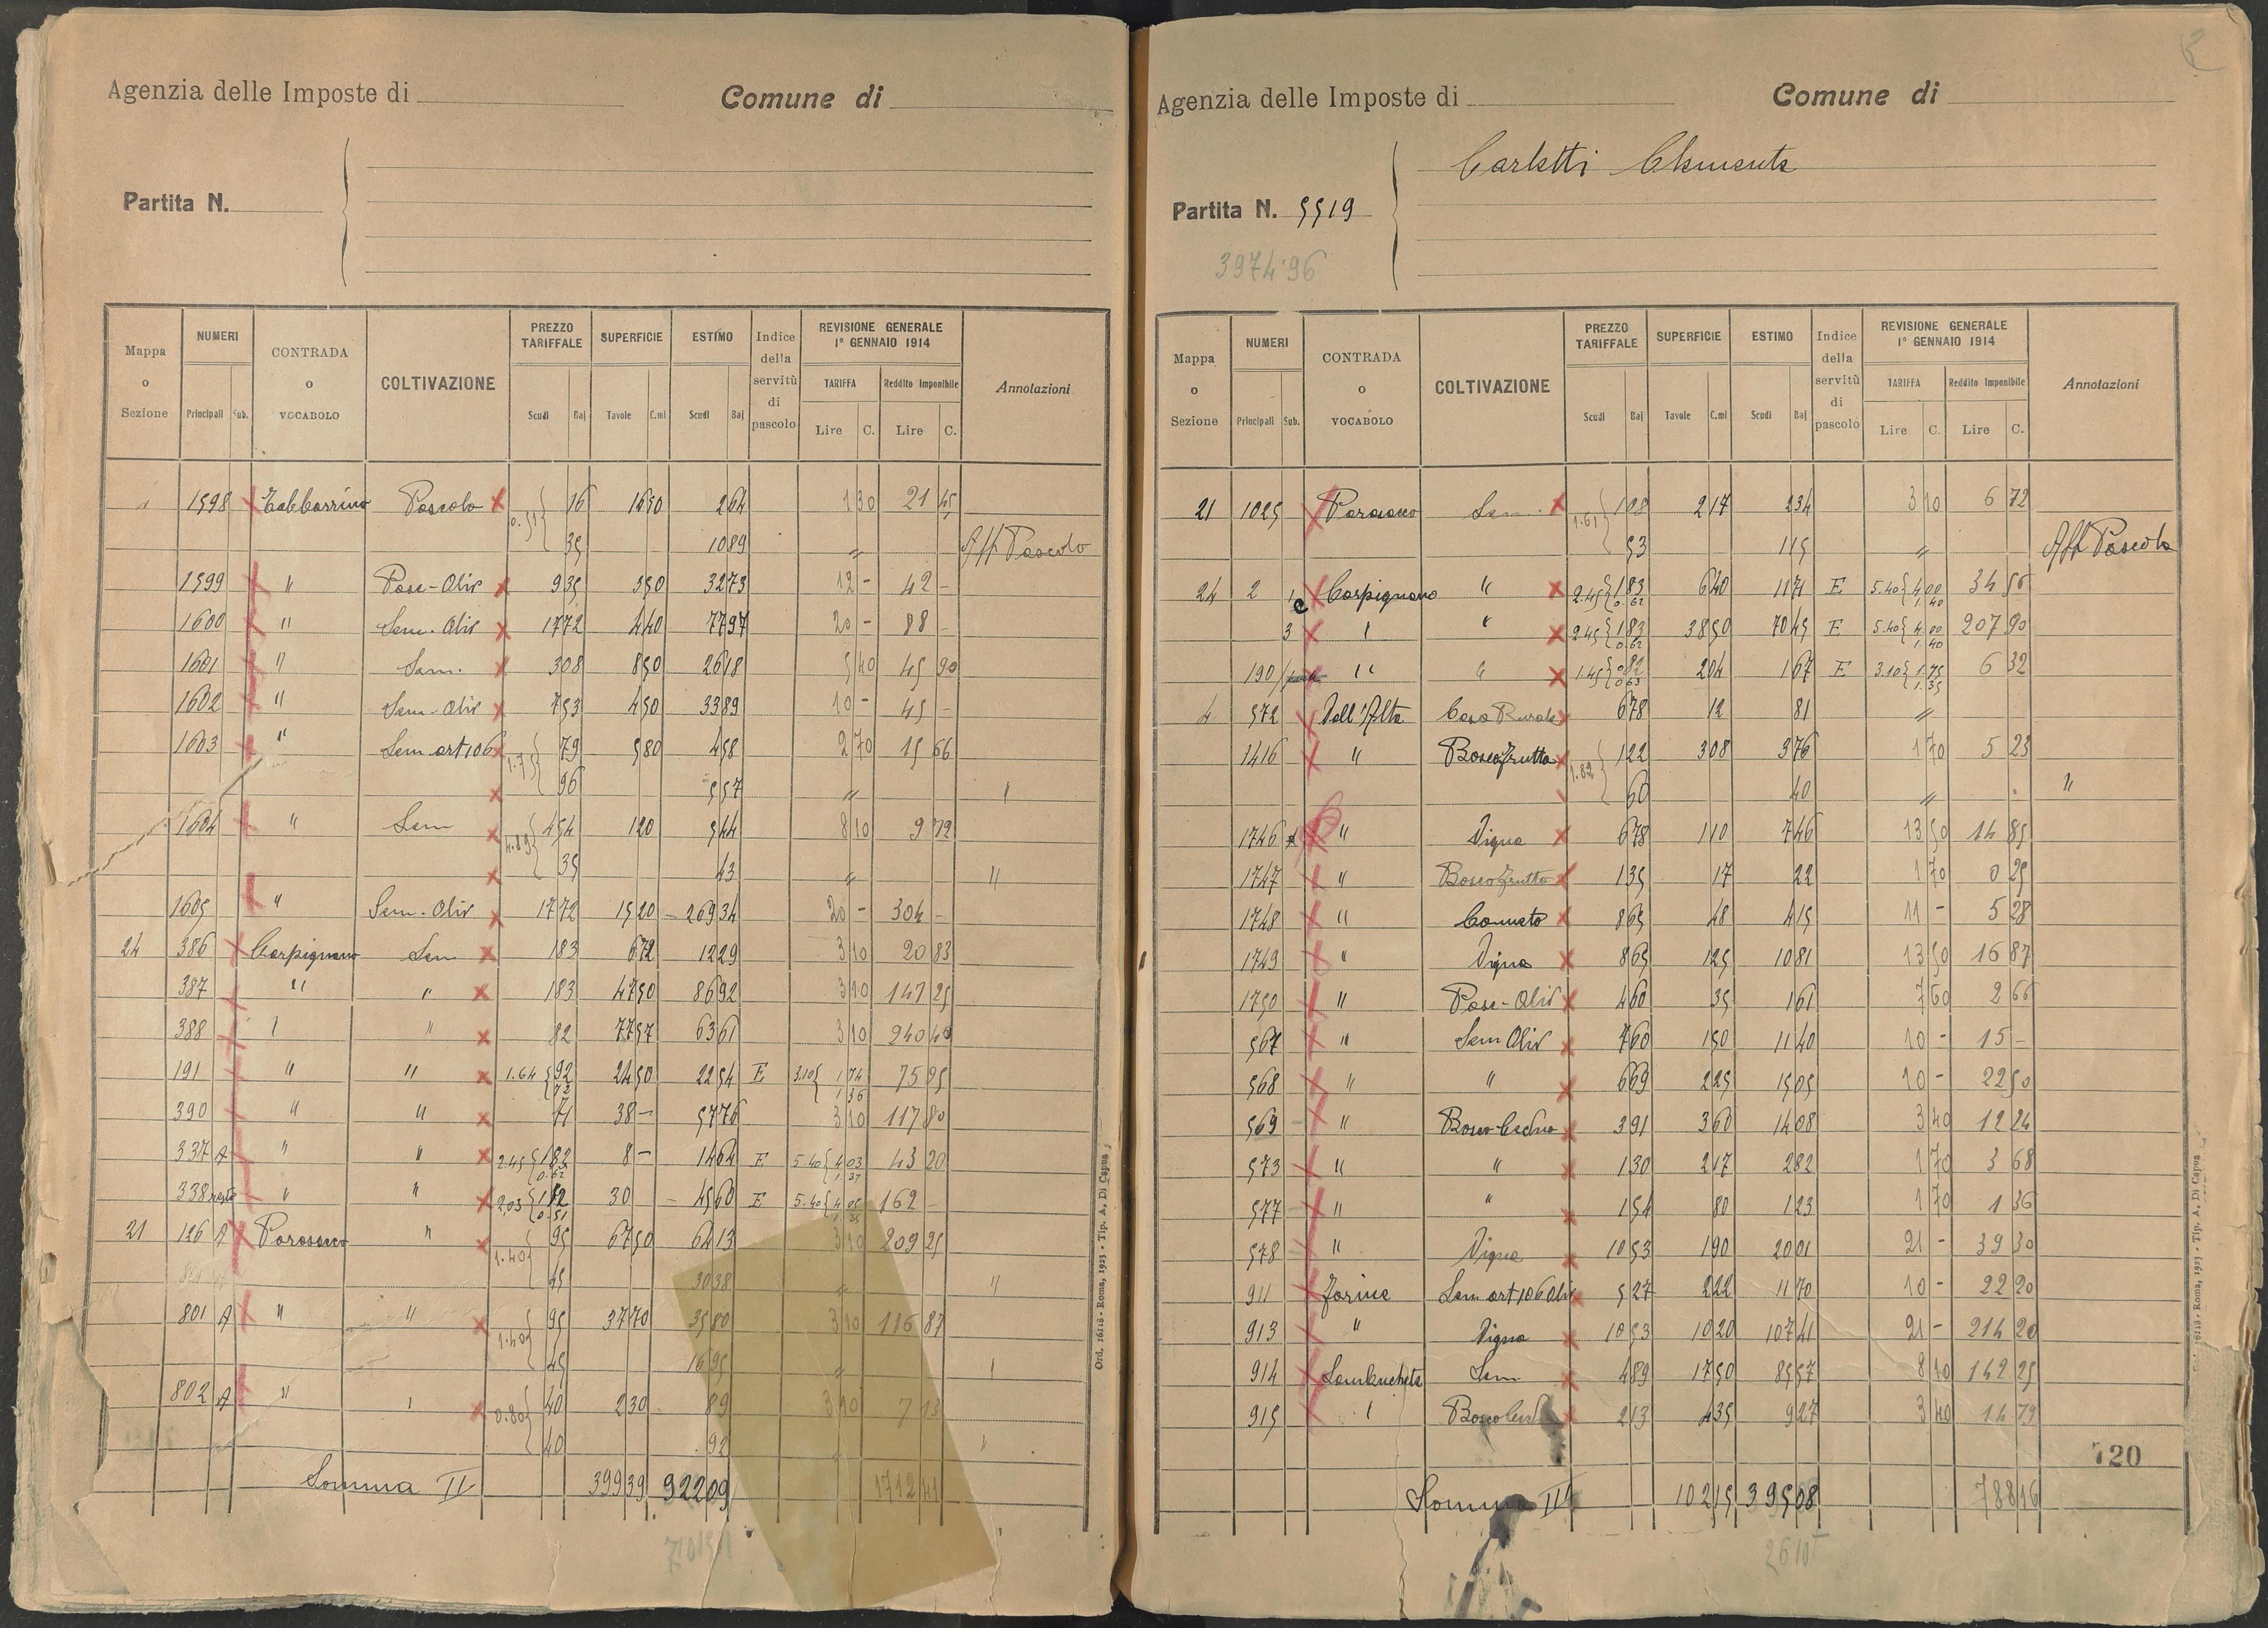 Agenzia delle Imposte di
Comune di
Partita N.
Mappa o Sezione | NUMERI Principali Sub. | CONTRADA o VOCABOLO | COLTIVAZIONE | PREZZO TARIFFALE Scudi Baj | SUPERFICIE Tavole C.mi | ESTIMO Scudi Baj | Indice della servitù di pascolo | REVISIONE GENERALE 1° GENNAIO 1914 TARIFFA Lire C. Reddito Imponibile Lire C. | Annotazioni
1598 Pascolo 16 1650 264 1 30 21 45
35 1089 " Aff Pascolo
1599 " Pasc-Oliv 935 350 3273 12 - 42 -
1600 " Sem. Oliv 1772 440 7797 20 - 88 -
1601 " Sem. 308 850 2618 5 40 45 90
1602 " Sem-Oliv 753 450 3389 10 - 45 -
1603 " Sem art 106 79 580 458 2 70 15 66
96 557 "
1604 " Sem 4.89 454 120 544 8 10 9 72
35 43 " "
1605 " Sem. Oliv 1772 1520 26934 20 - 304 -
24 386 Carpignano Sem 183 672 1229 3 10 20 83
387 " " 183 4750 8692 3 10 147 25
388 " 82 7757 6361 3 10 240 40
191 " " 1.64 92 72 2450 2254 E 3.10 1 74 1 36 75 95
390 " " 38 - 5776 3 10 117 80
337 A " " 2.45 182 0.62 8 - 1464 E 5.40 4 03 1 37 43 20
338 resto " " 2.03 152 0.51 30 4560 E 5.40 4 05 1 35 162 -
21 126 A " 1.40 95 6750 6413 3 10 209 25
45 3038 " "
801 A " " 1.40 95 3770 3580 3 10 116 87
45 1695 "
802 A " 0.80 40 230 89 3 10 7 13
40 92 "
Somma II 39939 92209 1712 41
Ord. 16118 - Roma, 1923 - Tip. A. Di Capua
Agenzia delle Imposte di
Comune di
Carletti Clemente
Partita N. 5519
3974.96
Mappa o Sezione | NUMERI Principali Sub. | CONTRADA o VOCABOLO | COLTIVAZIONE | PREZZO TARIFFALE Scudi Baj | SUPERFICIE Tavole C.mi | ESTIMO Scudi Baj | Indice della servitù di pascolo | REVISIONE GENERALE 1° GENNAIO 1914 TARIFFA Lire C. Reddito Imponibile Lire C. | Annotazioni
21 1025 Sem. 1.61 108 217 234 3 10 6 72
53 115 " Aff Pascolo
24 2 1 Carpignano " 2.45 183 0.62 640 1171 E 5.40 4 00 1.40 34 56
3 " 2.45 183 0.62 3850 7045 E 5.40 4 00 1.40 207 90
190 " " 1.45 0.82 0.63 204 167 E 3.10 1.75 1.35 6 32
4 572 Vall'Alta Casa Rurale 678 12 81 "
1416 " Bosco frutto 1.82 122 308 376 1 70 5 23
60 40 " "
1746 " Vigna 678 110 746 13 50 14 85
1747 " Bosco frutto 135 17 22 1 70 0 29
1748 " Canneto 865 48 415 11 - 5 28
1749 " Vigna 865 125 1081 13 50 16 87
1750 " Pasc-Oliv 460 35 161 7 60 2 66
567 " Sem Oliv 760 150 1140 10 - 15 -
568 " " 669 225 1505 10 - 22 50
569 " Bosco Ceduo 391 360 1408 3 40 12 24
573 " " 130 217 282 1 70 3 68
577 " " 154 80 123 1 70 1 36
578 " Vigna 1053 190 2001 21 - 39 30
911 Sem art 106 Oliv 527 222 1170 10 - 22 20
913 " Vigna 1053 1020 10741 21 - 214 20
914 Sem 489 1750 8557 8 10 142 25
915 Bosco 213 435 927 3 40 14 79
120
Somma III 10215 39508 788 16
2610
16118 - Roma, 1923 - Tip. A. Di Capua